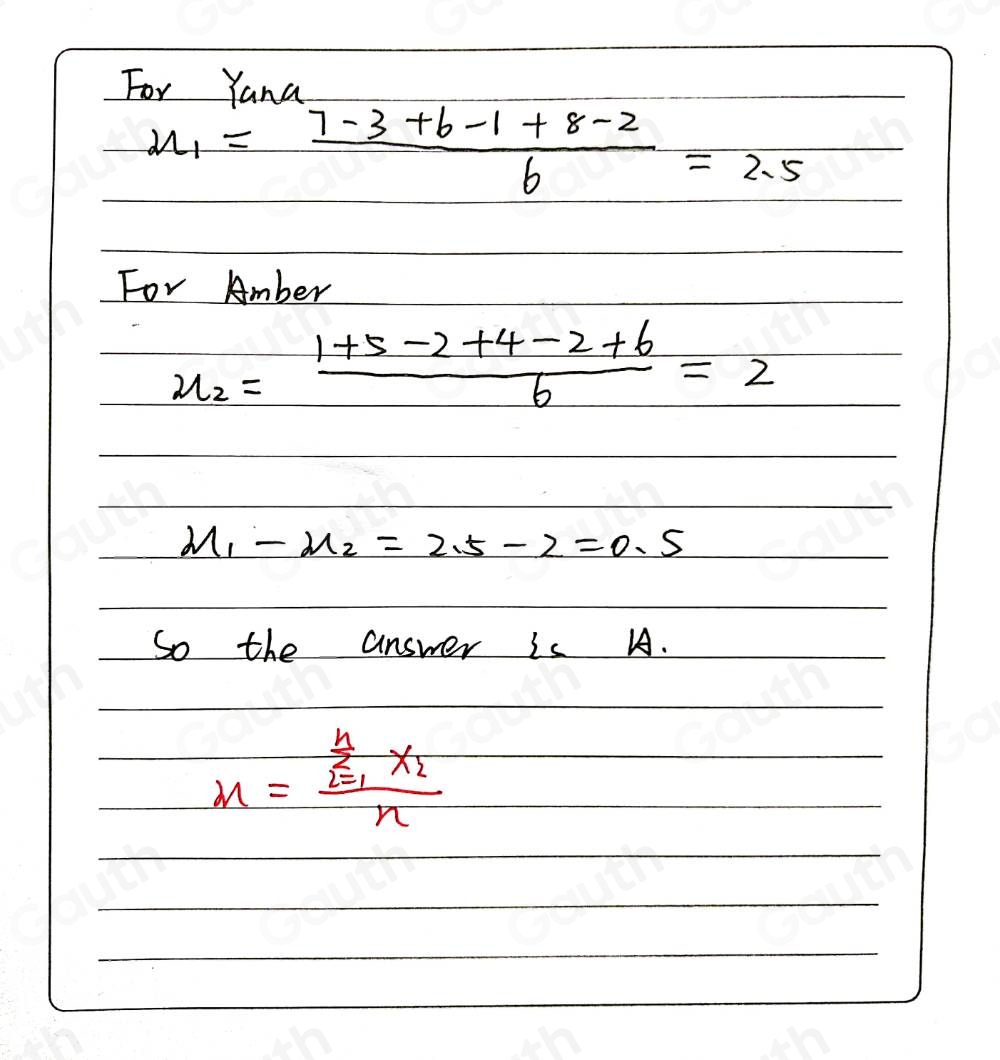 For Yana
μ₁ = (7-3+6-1+8-2)/6 = 2.5
For Amber
μ₂ = (1+5-2+4-2+6)/6 = 2
μ₁ - μ₂ = 2.5 - 2 = 0.5
So the answer is A.
μ = (Σ i=1 n xᵢ)/n
Gauth